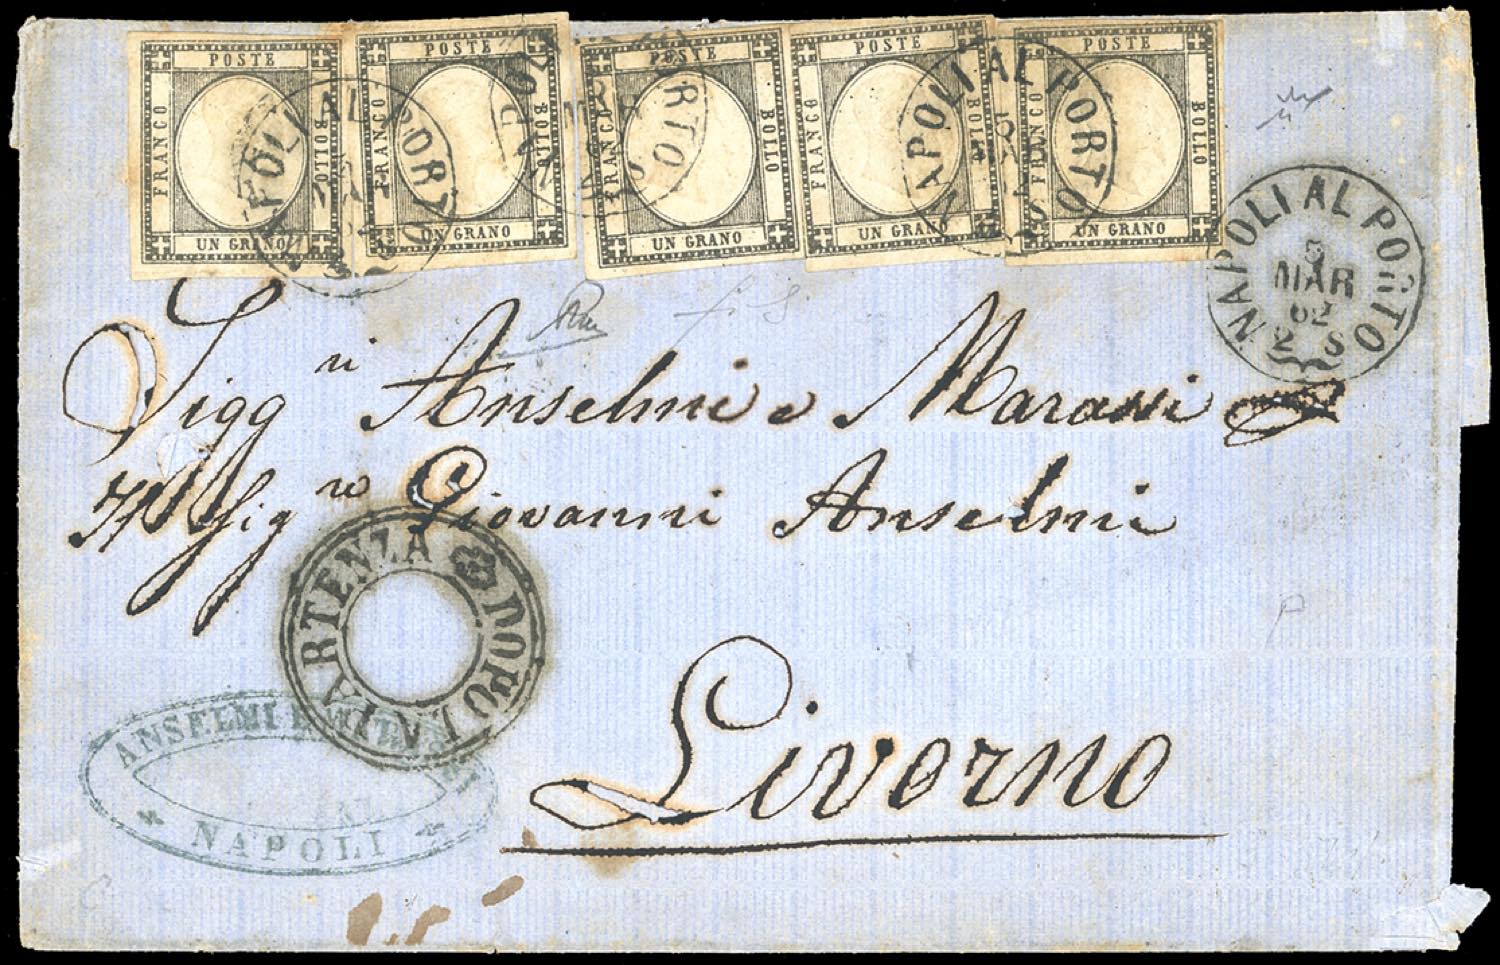 POSTE
FRANCO
BOLLO
UN GRANO
POSTE
FRANCO
BOLLO
UN GRANO
POSTE
FRANCO
BOLLO
UN GRANO
POSTE
FRANCO
BOLLO
UN GRANO
POSTE
FRANCO
BOLLO
UN GRANO
NAPOLI AL PORTO
NAPOLI AL PORTO
NAPOLI AL PORTO
NAPOLI AL PORTO
3
MAR
62
2 S
Sigg ri Anselmi e Marassi
Sig re Giovanni Anselmi
Livorno
DOPO PARTENZA
ANSELMI
NAPOLI